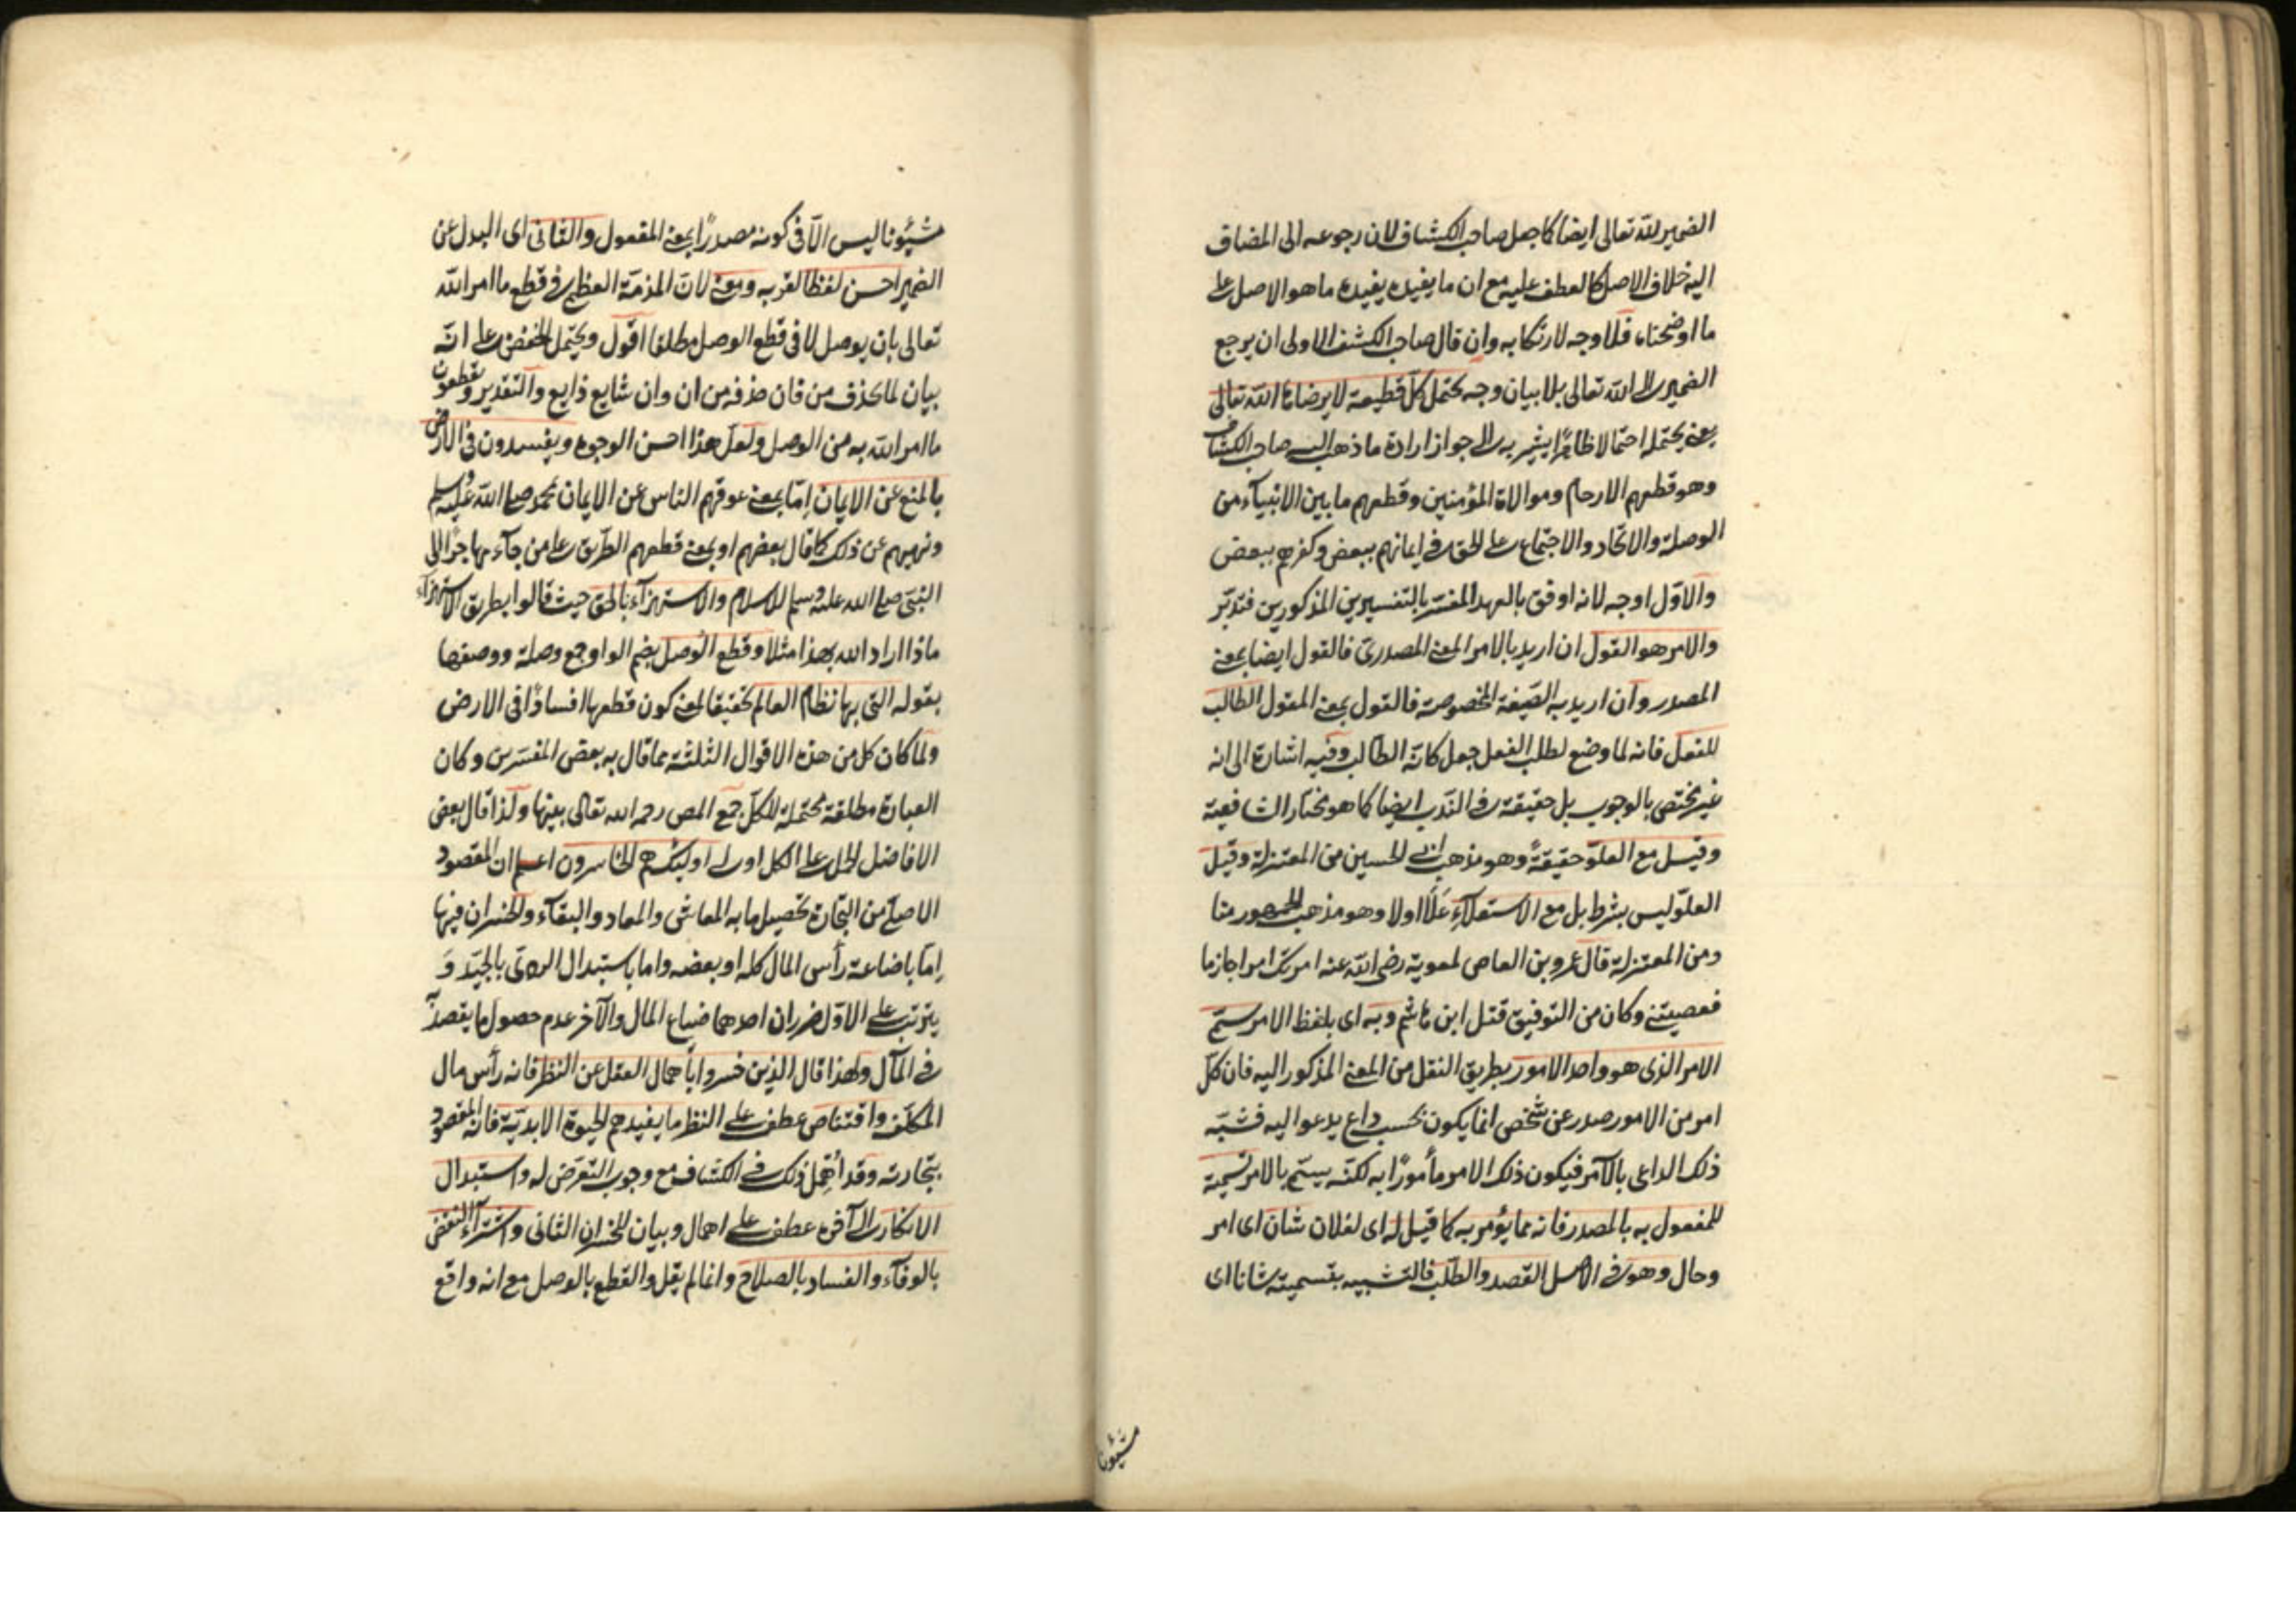 الضمير لله تعالى ايضا كما جعل صاحب الكشاف لان رجوعه الى المضاف
اليه خلاف الاصل كالعطف عليه مع ان ما يفيده يفيده ما هو الاصل على
ما اوضحناه فلا وجه لارتكابه وان قال صاحب الكشف الاولى ان يرجع
الضمير الى الله تعالى بلا بيان وجه يحتمل كل قطيعة لا يرضاها الله تعالى
يعنى يحتمله احتمالا ظاهرا يشير به الى جواز ارادة ما ذهب اليه صاحب الكشاف
وهو قطعهم الارحام وموالاة المؤمنين وقطعهم ما بين الانبيآء من
الوصلة والاتحاد والاجتماع على الحق فى ايمانهم ببعض وكفرهم ببعض
والاوّل اوجه لانه اوفق بالعهد المفسّر بالتفسيرين المذكورين فتدبّر
والامر هو القول ان اريد بالامر المعنى المصدرىّ فالقول ايضا بمعنى
المصدر وان اريد به الصّيغة المخصوصة فالقول بمعنى المقول الطالب
للفعل فانه لما وضع لطلب الفعل جعل كانّه الطالب وفيه اشارة الى انه
غير مختص بالوجوب بل حقيقة فى الندب ايضا كما هو مختار الشافعية
وقيل مع العلوّ حقيقةً وهو مذهب ابى الحسين من المعتزلة وقيل
العلوّ ليس بشرط بل مع الاستعلآءِ عَلَا اولا وهو مذهب الجمهور منا
ومن المعتزلة قال عمرو بن العاص لمعوية رضى الله عنه امرتك امرا جازما
فعصيتنى وكان من التوفيق قتل ابن هاشم وبه اى بلفظ الامر سمّى
الامر الذى هو واحد الامور بطريق النقل من المعنى المذكور اليه فان كلّ
امر من الامور صدر عن شخص انما يكون بحسب داع يدعوا اليه فشبّه
ذلك الداعى بالآمر فيكون ذلك الامر مأمورًا به لكنّه يسمّى بالامر تسمية
للمفعول به بالمصدر فانه مما يؤمر به كما قيل له اى لفلان شان اى امر
وحال وهو فى الاصل القصد والطلب فالتشبيه بتسميته شانا اى
شيئونا
شيئونا ليس الّا فى كونه مصدرًا بمعنى المفعول والثانى اى البدل عن
الضمير احسن لفظا لقربه ومعنى لانّ المذمّة العظمى فى قطع ما امر الله
تعالى بان يوصل لا فى قطع الوصل مطلقا اقول ويحتمل الخفض على انّه
بيان لما بحذف من فان حذفه من ان وان شايع ذايع والتقدير ويقطعون
ما امر الله به من الوصل ولعلّ هذا احسن الوجوه ويفسدون فى الارض
بالمنع عن الايمان اِمّا بمعنى عوقهم الناس عن الايمان بمحمد صلى الله عليه وسلم
ونهيهم عن ذلك كما قال بعضهم او بمعنى قطعهم الطريق على من جآء مهاجرًا الى
النبىّ صلى الله عليه وسلم للاسلام والاستهزآء بالحق حيث قالوا بطريق الاستهزآء
ماذا اراد الله بهذا مثلا وقطع الوصل بضم الواو جمع وصلة ووصفها
بقوله التى بها نظام العالم تحقيقا لمعنى كون قطعها افسادًا فى الارض
ولما كان كل من هذه الاقوال الثلثة مما قال به بعض المفسّرين وكان
العبارة مطلقة محتملة للكلّ جمع المص رحمه الله تعالى بينها ولذا قال بعض
الافاضل الحمل على الكل اولى اولئك هم الخاسرون اعلم ان المقصود
الاصلىّ من التجارة تحصيل ما به المعاش والمعاد والبقآء والخسران فيها
اِمّا باضاعة رأس المال كله او بعضه واما باستبدال الردىّ بالجيّد وَ
يترتب على الاوّل ضرران احدهما ضياع المال والآخر عدم حصول ما يقصد به
فى المآل ولهذا قال الذين خسروا باهمال العقل عن النظر فانه رأس مال
المكلّف واقتناص عطف على النظر ما يفيدهم الحيوة الابديّة فانه المقصود
بتجارته وقد أهمل ذلك فى الكشاف مع وجوب التعرّض له واستبدال
الانكار الى آخره عطف على اهمال وبيان للخسران الثانى واشترآء النقض
بالوفآء والفساد بالصلاح وانما لم يقل والقطع بالوصل مع انه واقع